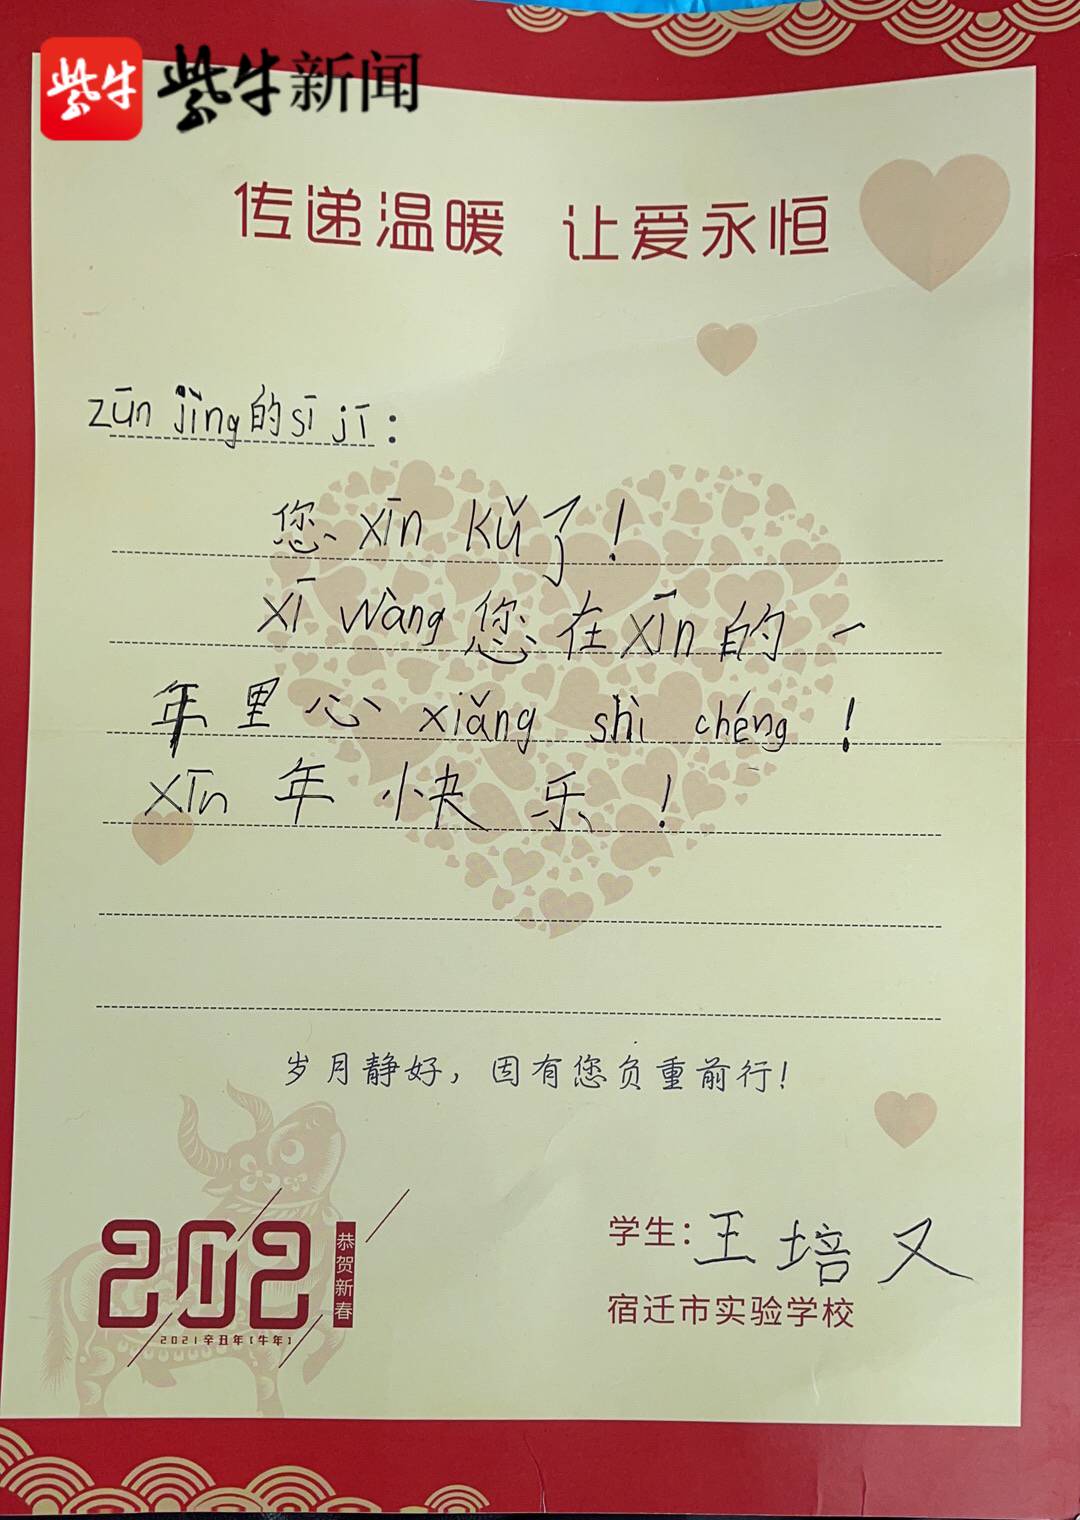 紫牛 紫牛新闻
传递温暖 让爱永恒
zūn jìng的sī jī：
您xīn kǔ了！
xī wàng您在xīn的一
年里心xiǎng shì chéng！
xīn年快乐！
岁月静好，因有您负重前行！
2021 恭贺新春
2021辛丑年[牛年]
学生：王培又
宿迁市实验学校